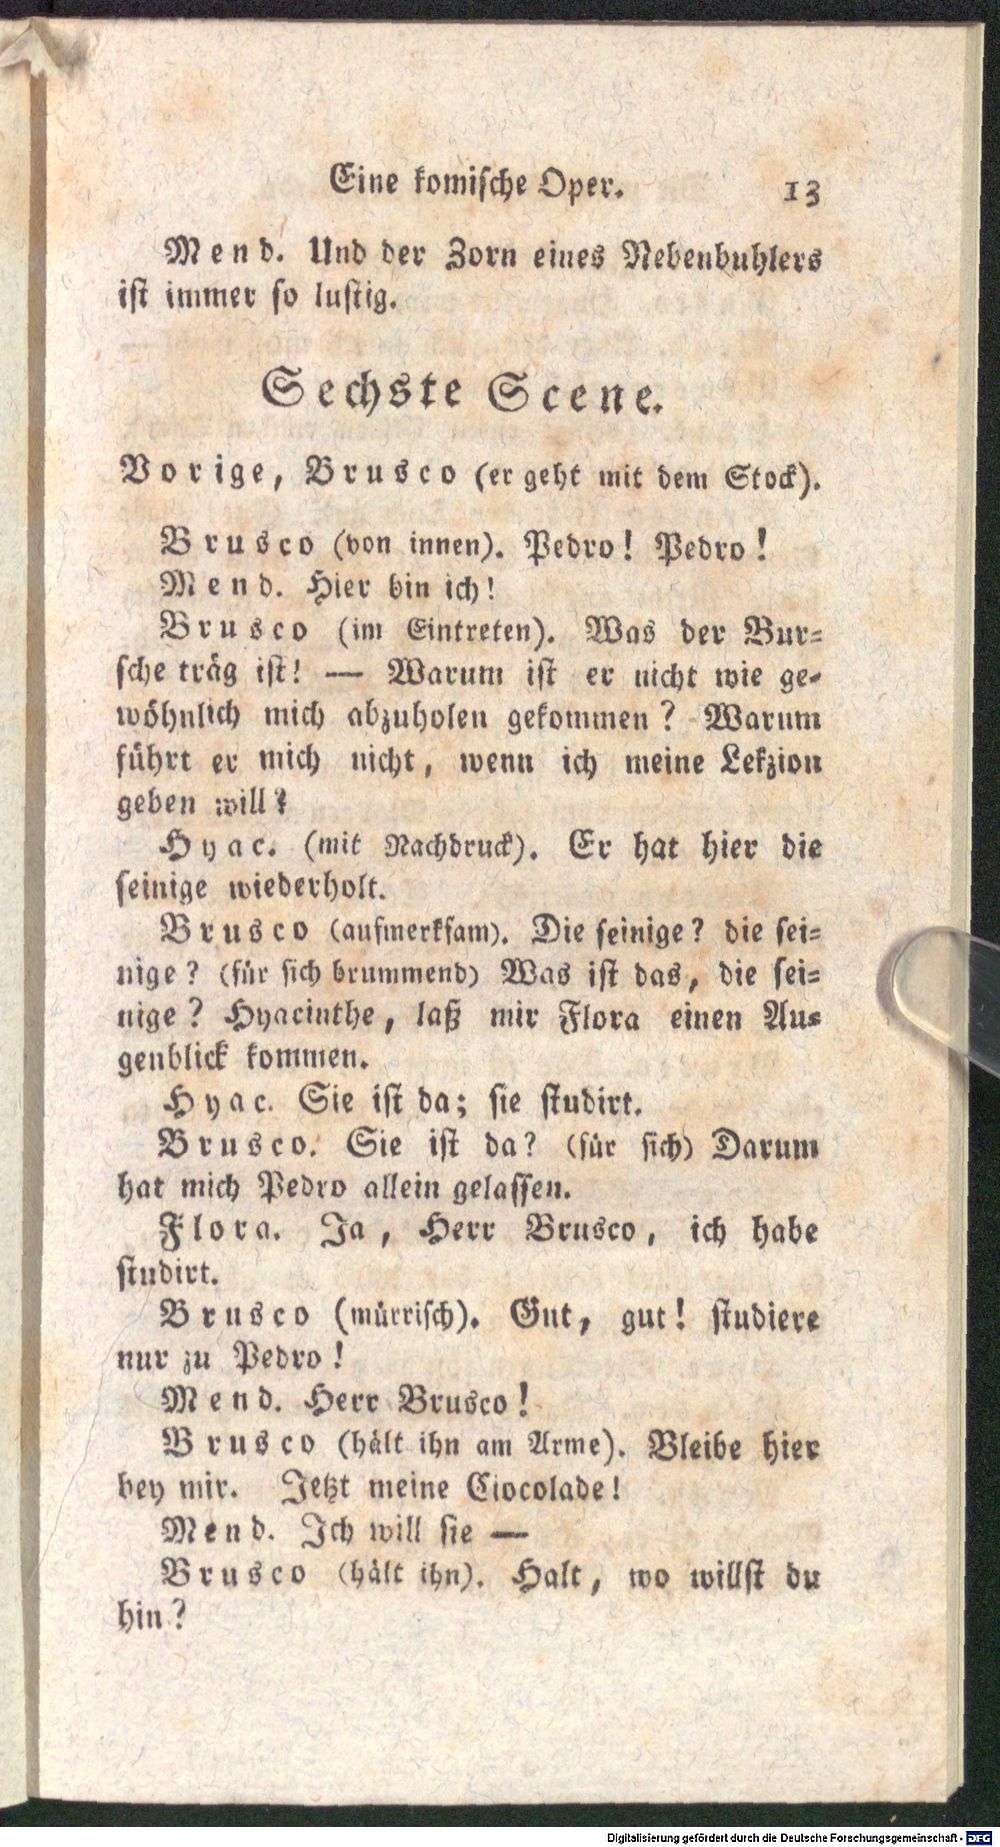 Eine komische Oper. 13
Mend. Und der Zorn eines Nebenbuhlers
ist immer so lustig.
Sechste Scene.
Vorige, Brusco (er geht mit dem Stock).
Brusco (von innen). Pedro! Pedro!
Mend. Hier bin ich!
Brusco (im Eintreten). Was der Bur-
sche träg ist! — Warum ist er nicht wie ge-
wöhnlich mich abzuholen gekommen? Warum
führt er mich nicht, wenn ich meine Lekzion
geben will?
Hyac. (mit Nachdruck). Er hat hier die
seinige wiederholt.
Brusco (aufmerksam). Die seinige? die sei-
nige? (für sich brummend) Was ist das, die sei-
nige? Hyacinthe, laß mir Flora einen Au-
genblick kommen.
Hyac. Sie ist da; sie studirt.
Brusco. Sie ist da? (für sich) Darum
hat mich Pedro allein gelassen.
Flora. Ja, Herr Brusco, ich habe
studirt.
Brusco (mürrisch). Gut, gut! studiere
nur zu Pedro!
Mend. Herr Brusco!
Brusco (hält ihn am Arme). Bleibe hier
bey mir. Jetzt meine Ciocolade!
Mend. Ich will sie —
Brusco (hält ihn). Halt, wo willst du
hin?
Digitalisierung gefördert durch die Deutsche Forschungsgemeinschaft - DFG